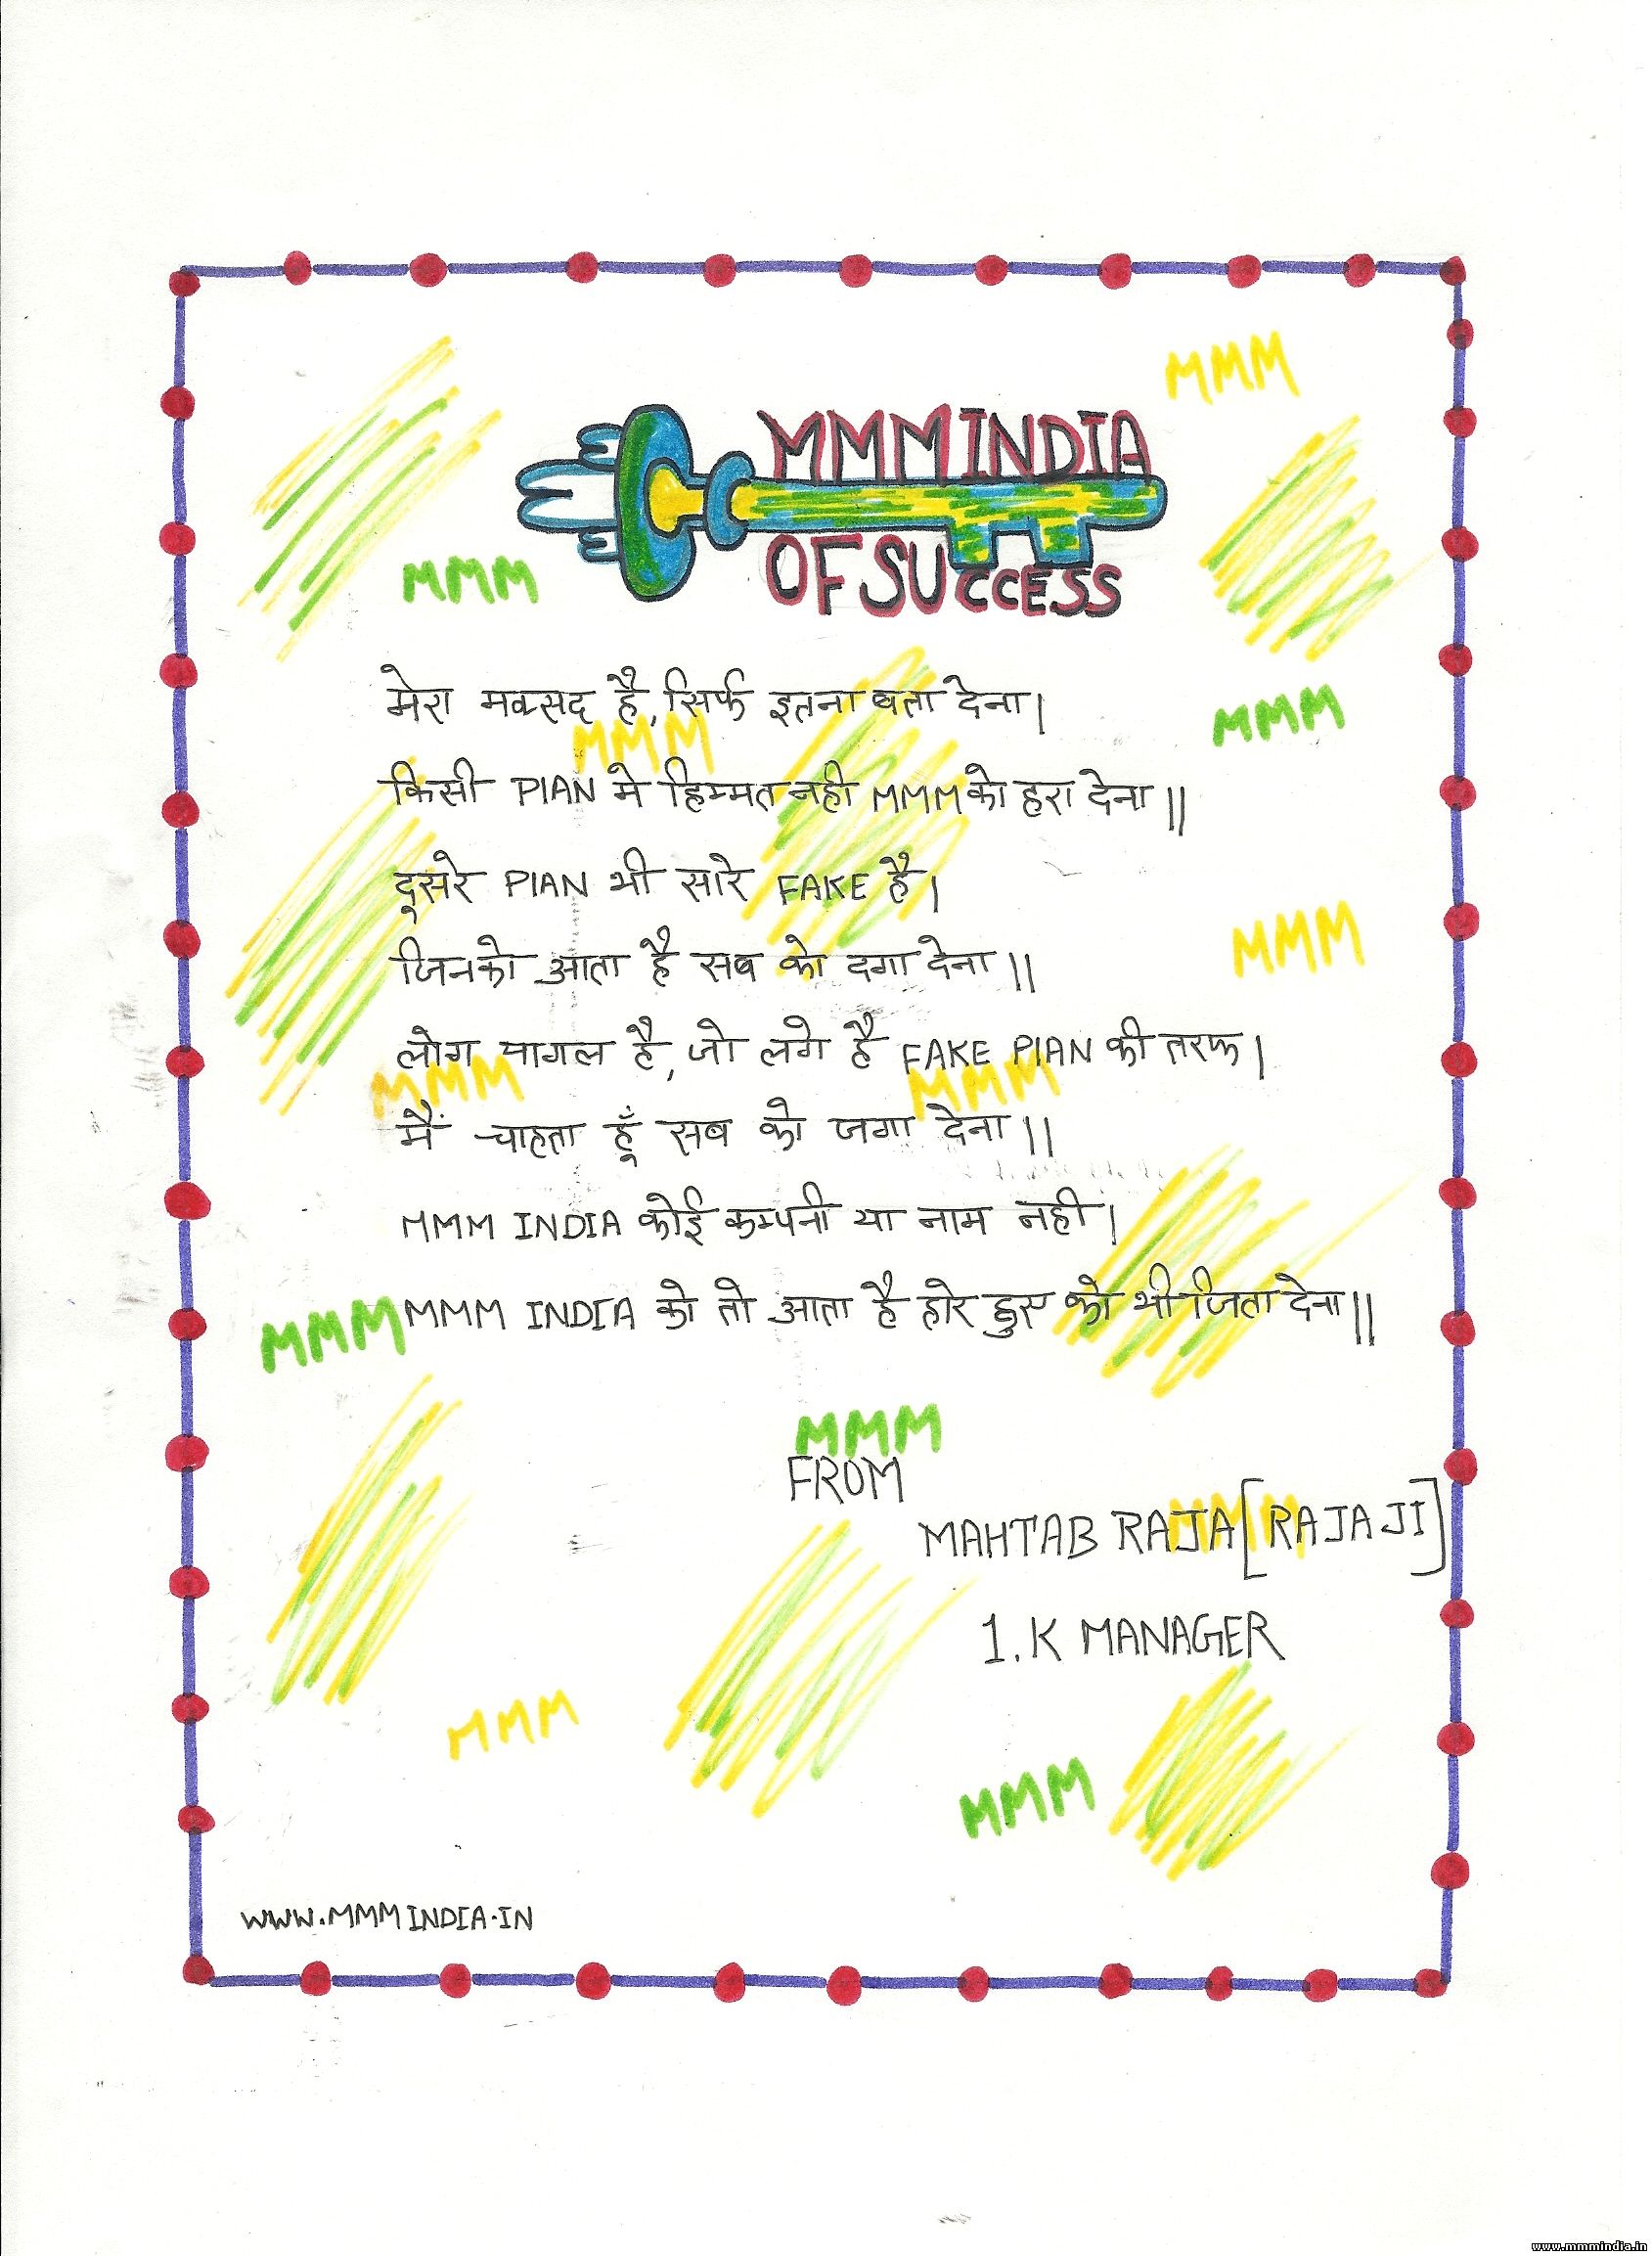 MMM
MMM INDIA
OF SUCCESS
MMM
मेरा मकसद है, सिर्फ इतना बता देना।
MMM
MMM
किसी PIAN मे हिम्मत नही MMM को हरा देना॥
दुसरे PIAN भी सारे FAKE है।
MMM
जिनको आता है सब को दगा देना॥
लोग पागल है, जो लगे है FAKE PIAN की तरफ।
MMM MMM
मैं चाहता हूँ सब को जगा देना॥
MMM INDIA कोई कम्पनी या नाम नही।
MMM MMM INDIA को तो आता है होर हुए को भी जिता देना॥
MMM
FROM
MAHTAB RAJA [RAJA JI]
MMM
1.K MANAGER
MMM
MMM
WWW.MMMINDIA.IN
www.mmmindia.in